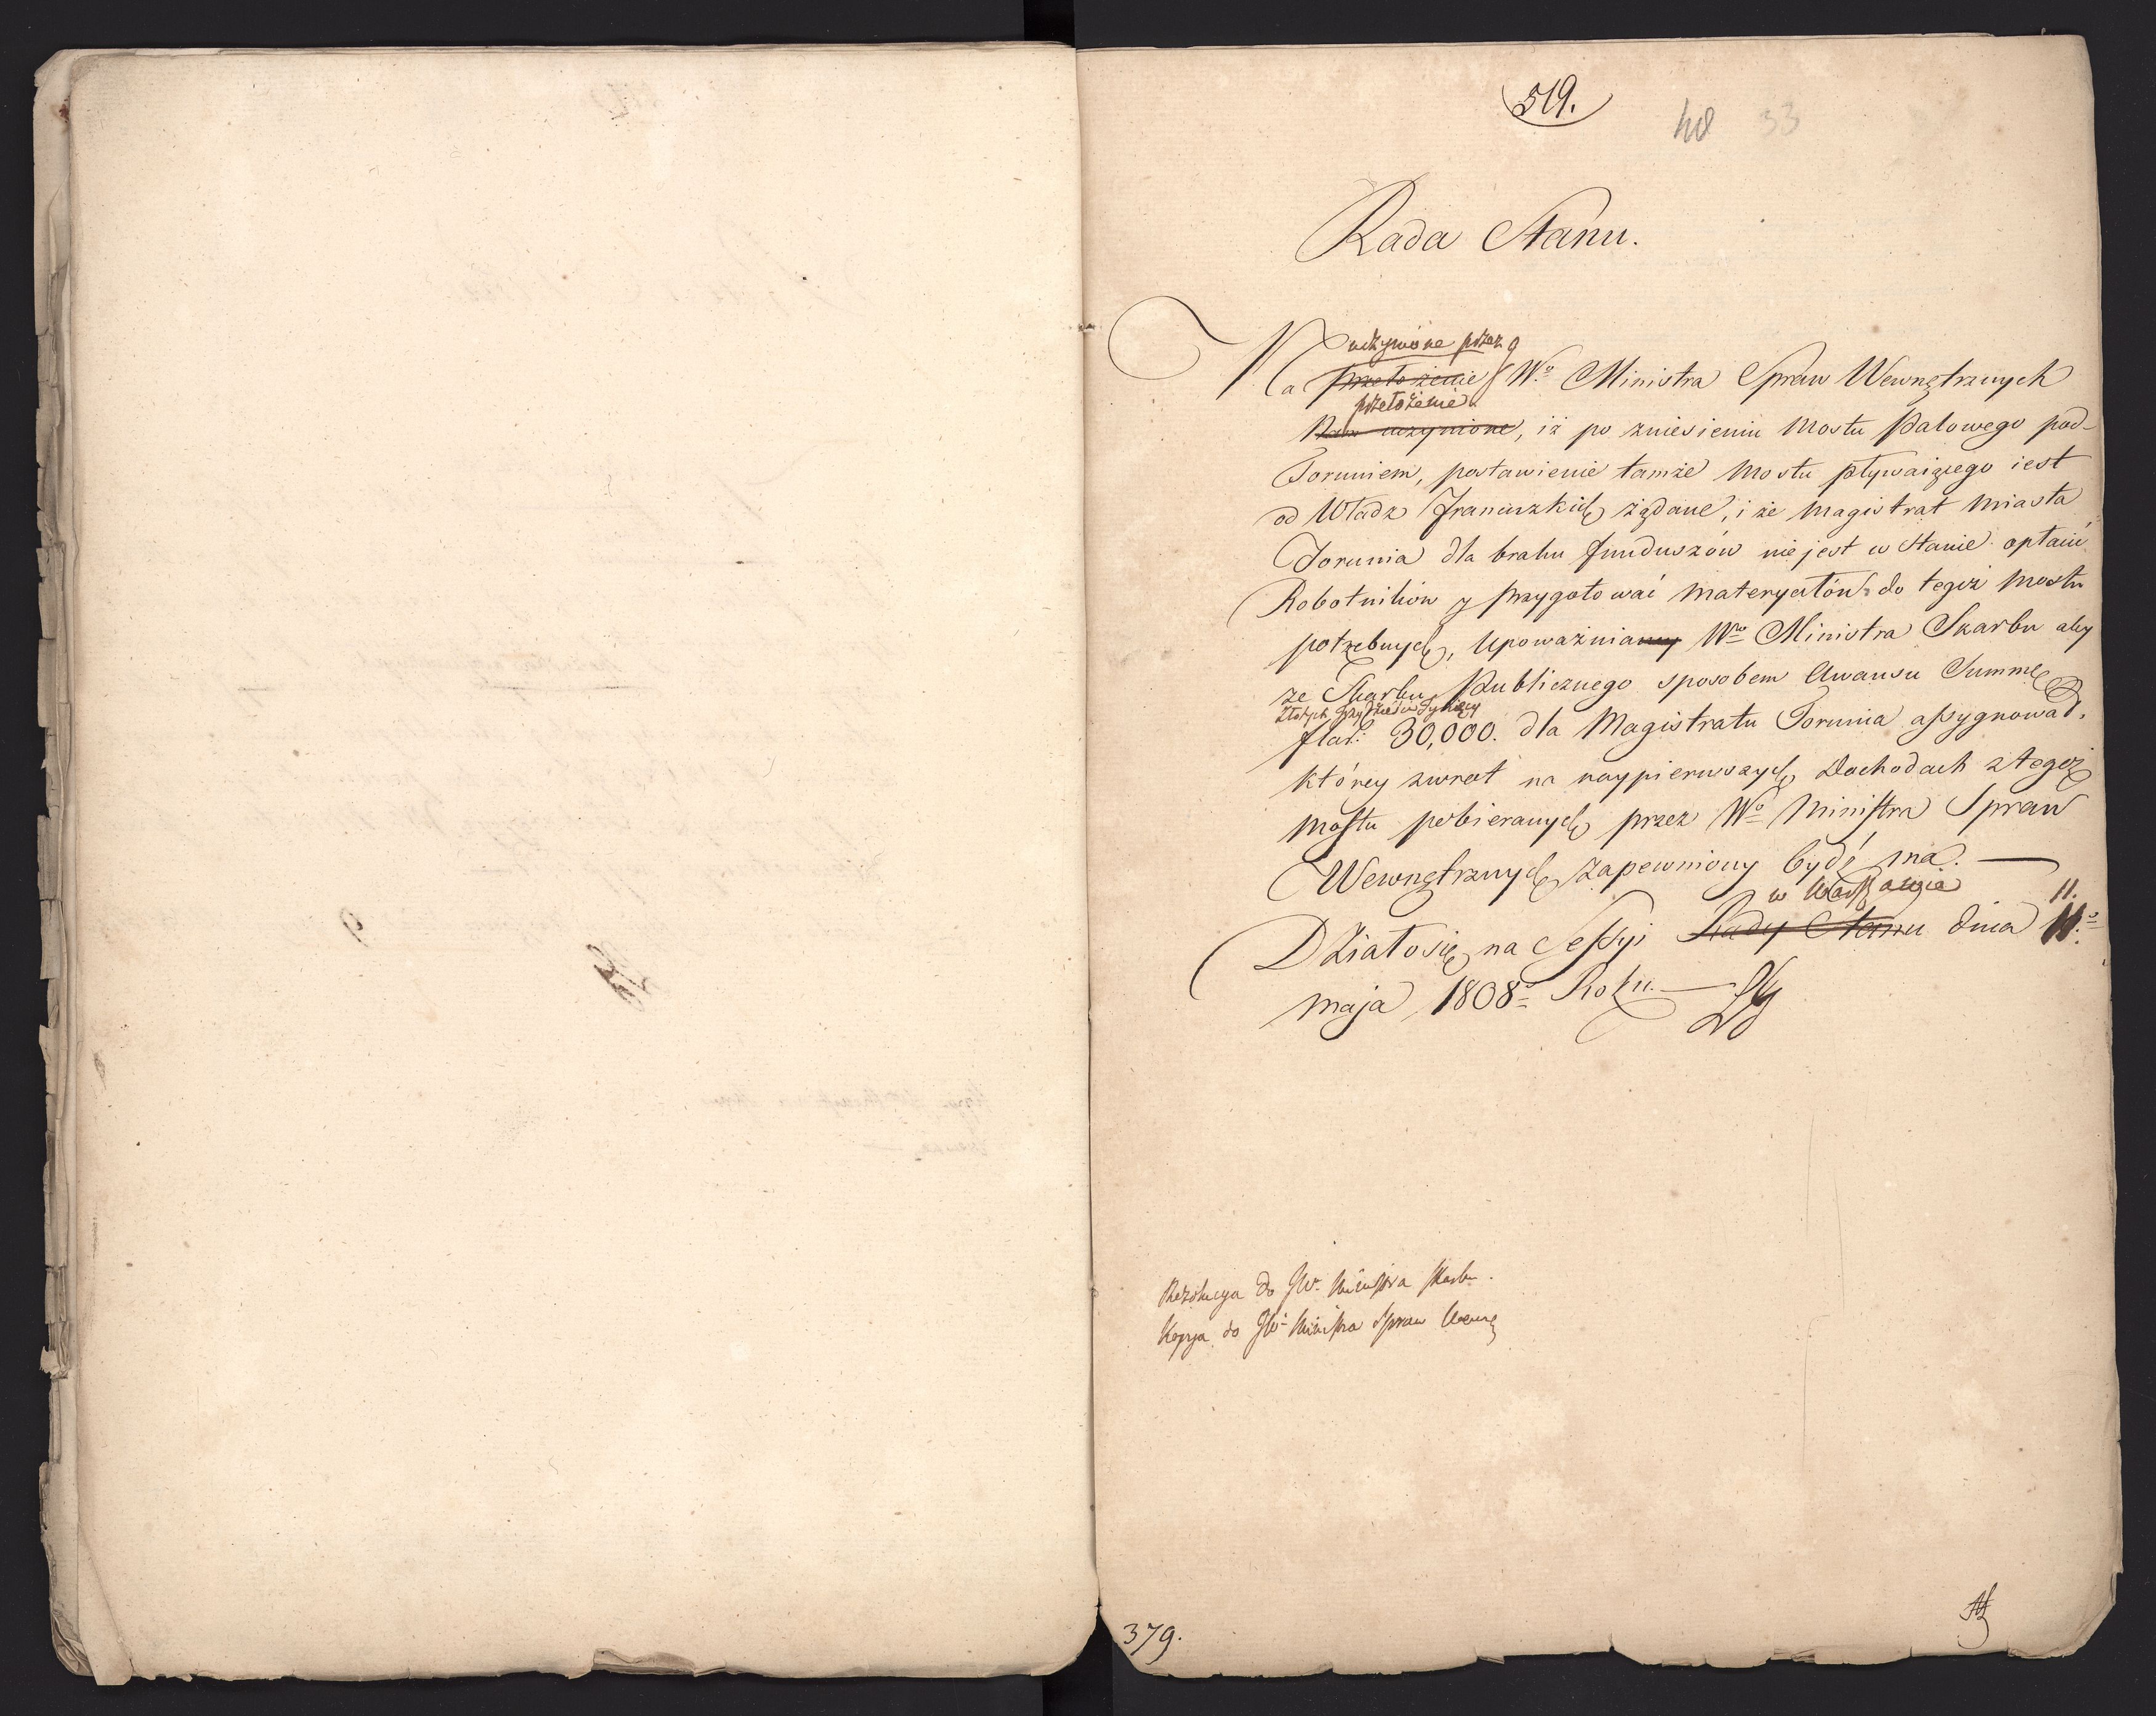 519.
48 33
Rada Stanu.
uczynione przez
Na przełożenie Wo Ministra Spraw Wewnętrznych
przełożenie
uczynione, iż po zniesieniu Mostu Palowego pod-
Toruniem, postawienie tamże Mostu pływaiącego iest
od Władz Francuzkich żądane, i że Magistrat Miasta
Torunia dla braku funduszów nie jest w Stanie opłacić
Robotników y przygotować Materyałów do tegoż Mostu
potrzebnych, Upoważniamy Wo Ministra Skarbu aby
ze Skarbu Publicznego sposobem Awansu Summę
Złotych trzydzieści Tysięcy
flor: 30,000. dla Magistratu Torunia assygnował,
którey zwrot na naypierwszych Dochodach z tegoż
Mostu pobieranych przez Wo Ministra Spraw
Wewnętrznych zapewniony bydź ma. —
w Warszawie 11.
Działo się na Sessyi Rady Stanu dnia 11o
maja 1808o Roku. —
Rezolucya do JW. Ministra Skarbu.
Kopya do JWo Ministra Spraw Wewnę
379.